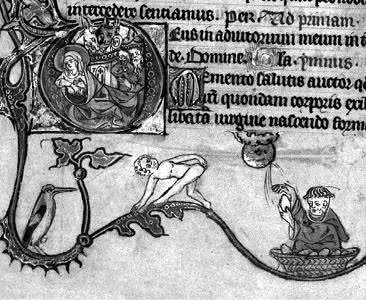 intercedere sentiamus. Per Ad primam.
Eus in adiutorium meum in
de. Domine. ps. primus.
Memento salutis auctor q
nri quondam corporis exil
libata uirgine nascendo form